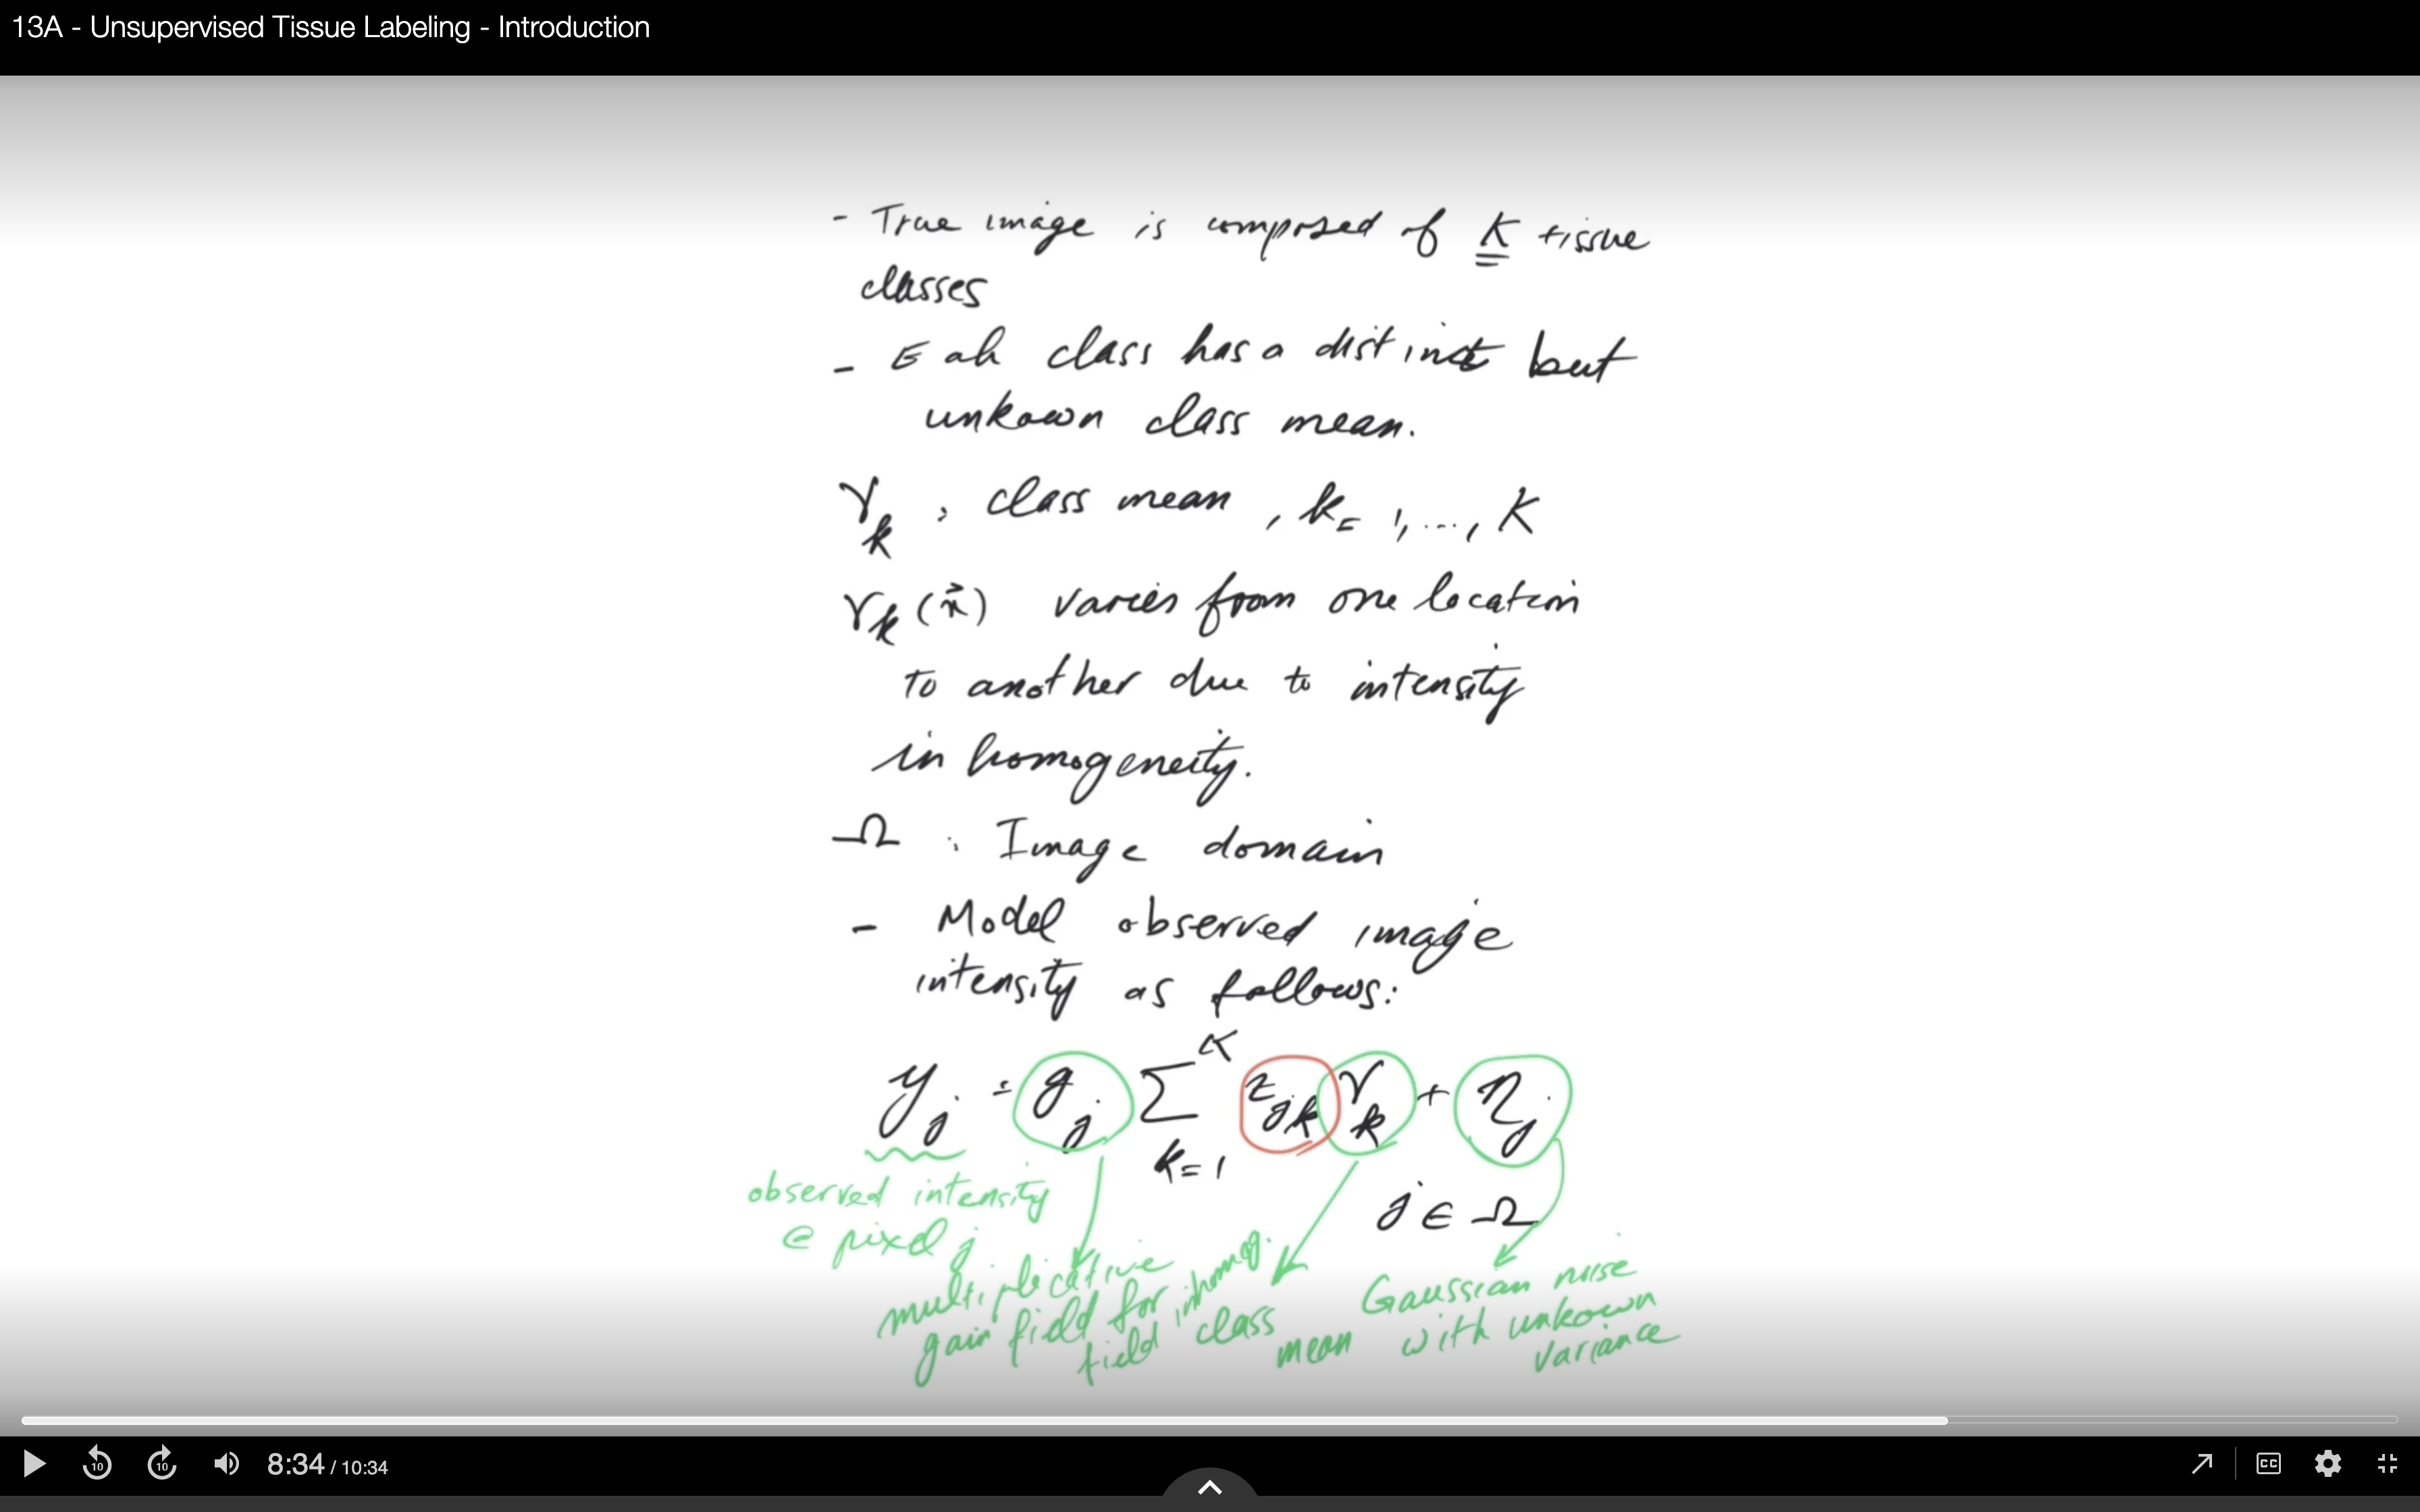 13A - Unsupervised Tissue Labeling - Introduction
- True image is composed of K tissue
classes
- Eah class has a distinct but
unkown class mean.
γk : class mean , k = 1, ..., K
γk (x⃗) varies from one location
to another due to intensity
in homogeneity.
Ω : Image domain
- Model observed image
intensity as follows:
yj = gj Σ K k=1 zjk γk + ηj
j ∈ Ω
observed intensity
@ pixel j
multiplicative
gain field for inhomog.
field
class
mean
Gaussian noise
with unkown
variance
10 10 8:34 / 10:34 CC